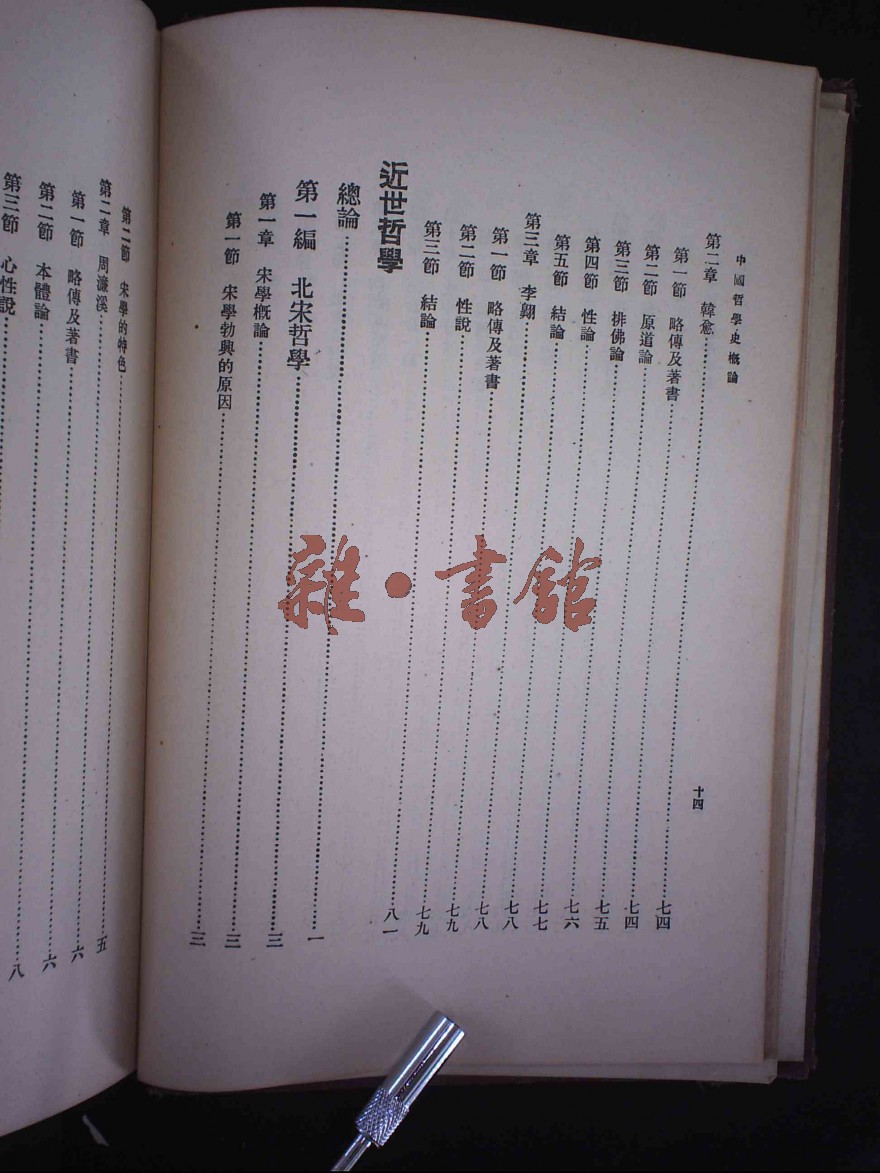 中國哲學史概論
十四
第二章 韓愈……七四
第一節 略傳及著書……七四
第二節 原道論……七五
第三節 排佛論……七六
第四節 性論……七七
第五節 結論……七八
第三章 李翺……七八
第一節 略傳及著書……七九
第二節 性說……七九
第三節 結論……八一
近世哲學
總論……一
第一編 北宋哲學……三
第一章 宋學概論……三
第一節 宋學勃興的原因……三
第二節 宋學的特色……五
第二章 周濂溪……六
第一節 略傳及著書……六
第二節 本體論……八
第三節 心性說……
雜·書館